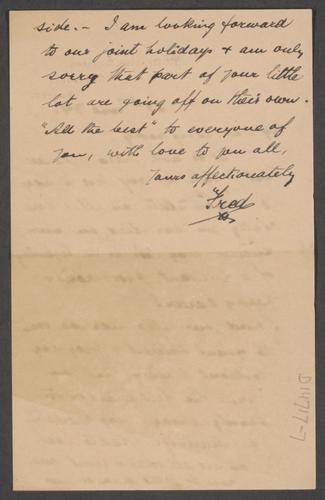 side. – I am looking forward
to our joint holidays & am only
sorry that part of your little
lot are going off on their own.
"All the best" to everyone of
you, with love to you all,
Yours affectionately
Fred
D14717-7